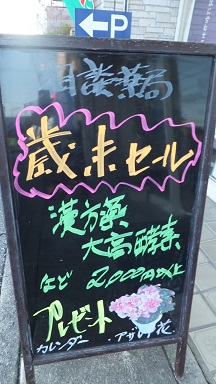 ←P
相談薬局
歳末セール
漢方薬
大高酵素
など 2,000円以上
プレゼント
カレンダー・アザレア花